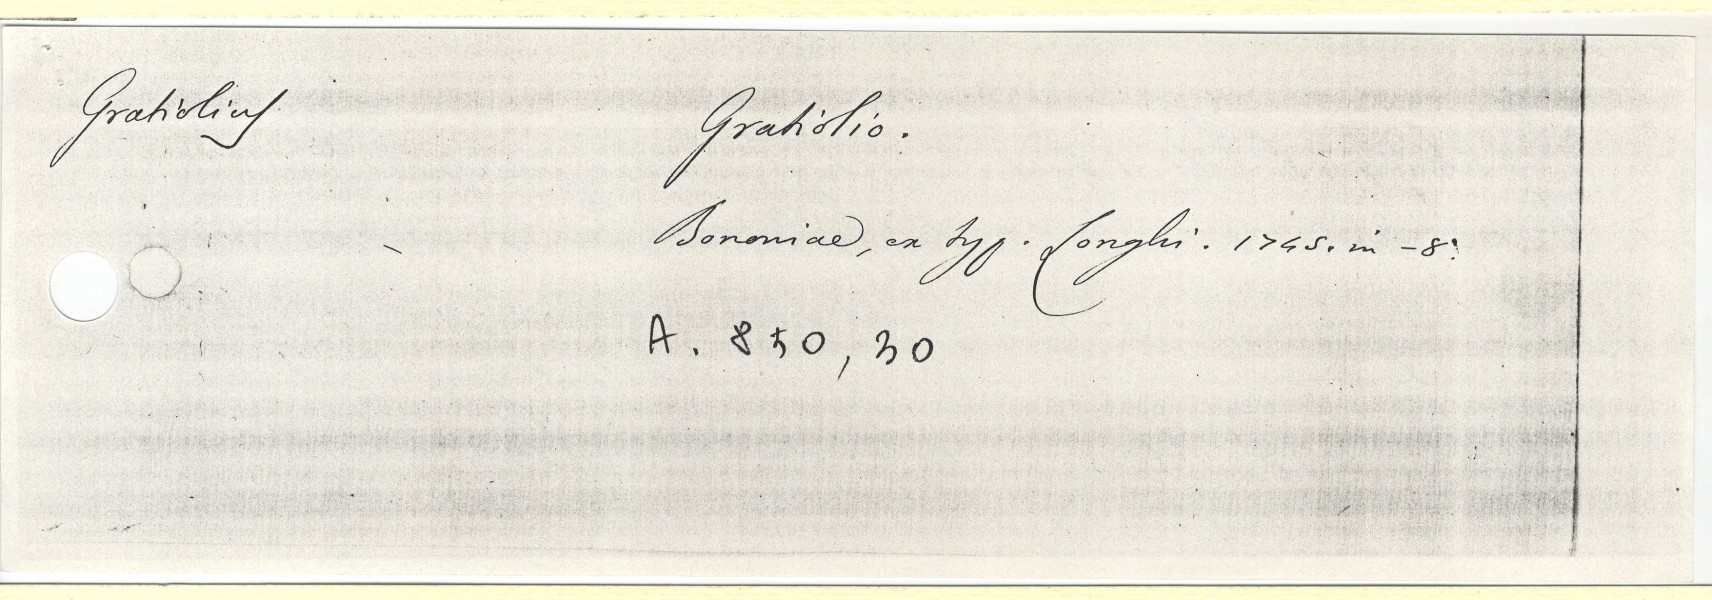 Gratiolius
Gratiolio.
Bononiae, ex typ. Longhi. 1745. in-8:
A. 850, 30